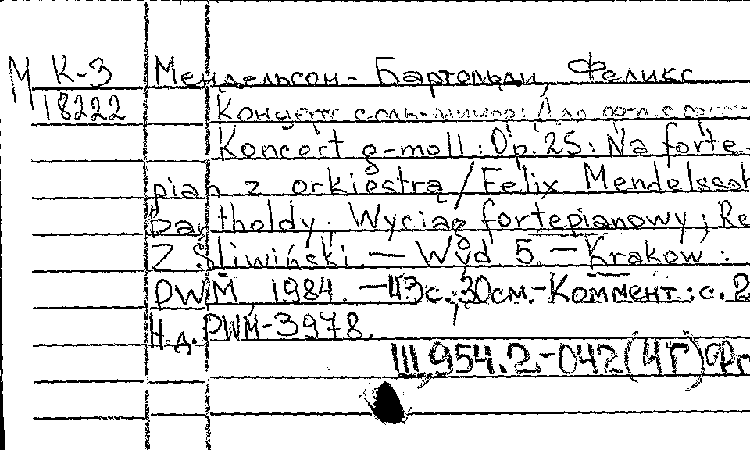 М К-3 Мендельсон-Бартольди, Феликс
18222 Концерт соль-минор: Для
Koncert g-moll: Op. 25: Na forte-
pian z orkiestrą / Felix Mendelssoh
Bartholdy; Wyciąg fortepianowy; Re
Z. Śliwiński. — Wyd 5. — Krakow:
PWM, 1984. — 113с.; 30см.-Коммент.: с. 2
Н.д. PWM-3978.
Ш954.2-042(4Г)